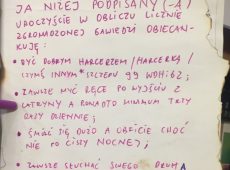 JA NIŻEJ PODPISANY (-A)
UROCZYŚCIE W OBLICZU LICZNIE
ZGROMADZONEJ GAWIEDZI OBIECAN-
KUJĘ:
• BYĆ DOBRYM HARCERZEM/HARCERKĄ/
CZYMŚ INNYM* SZCZEPU 99 WDH;GZ;
• ZAWSZE MYĆ RĘCE PO WYJŚCIU Z
LATRYNY A PONADTO MINIMUM TRZY
RAZY DZIENNIE;
• ŚMIAĆ SIĘ DUŻO A OBFICIE CHOĆ
NIE PO CISZY NOCNEJ;
• ZAWSZE SŁUCHAĆ SWEGO DRUHA